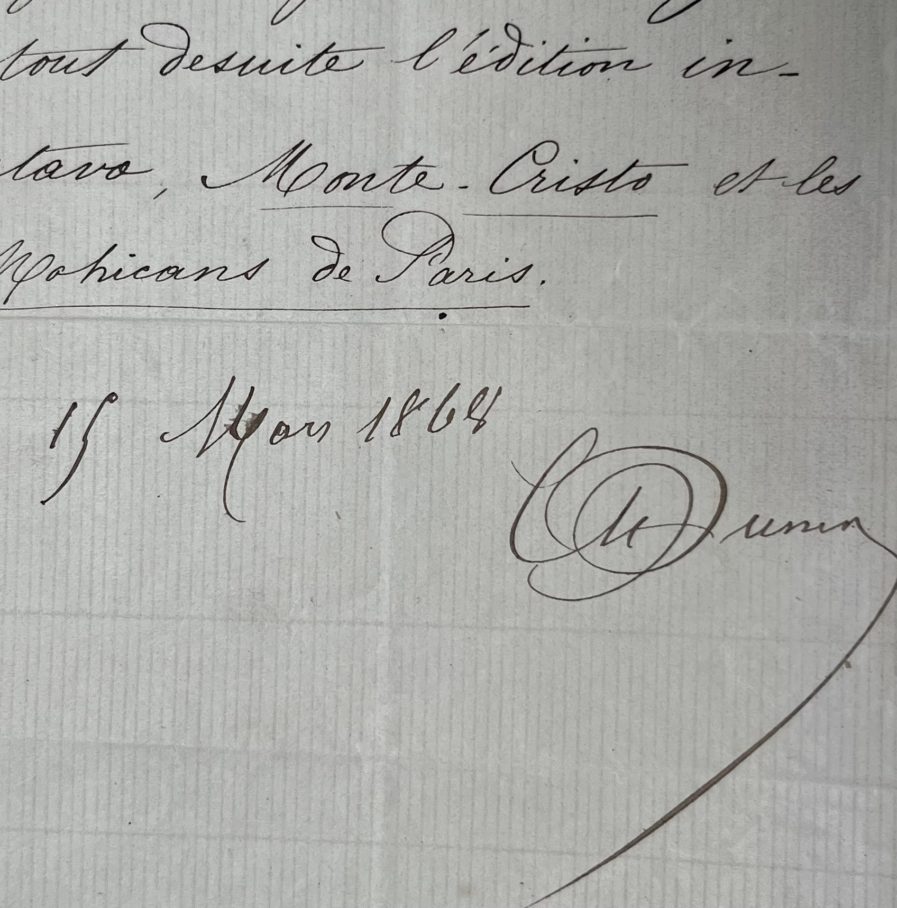 tout desuite l'édition in-
ctavo, Monte-Cristo et les
Mohicans de Paris.
15 Mars 1868
Dumas